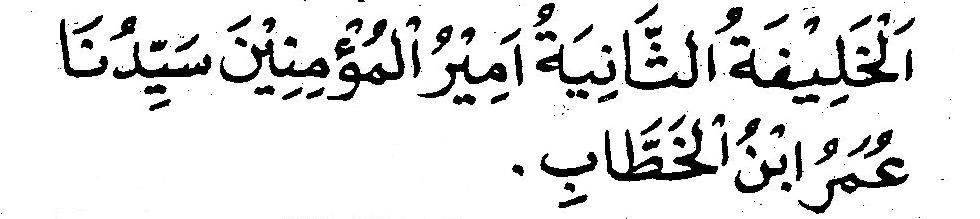 اَلْخَلِيْفَةُ الثَّانِيَةُ اَمِيْرُ الْمُؤْمِنِيْنَ سَيِّدُنَا
عُمَرُ ابْنُ الْخَطَّابِ.